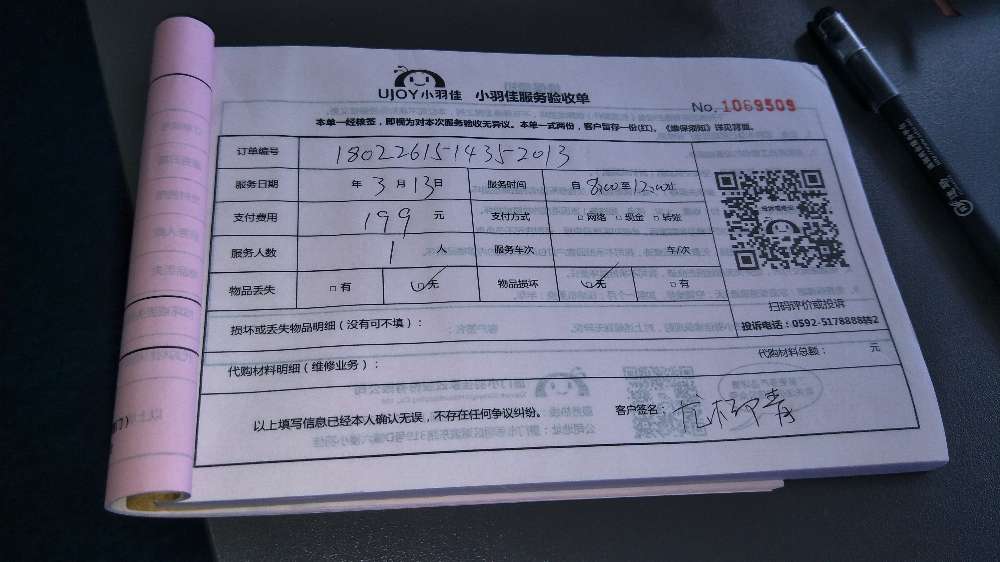 UJOY小羽佳 小羽佳服务验收单
No. 1069509
本单一经核签，即视为对本次服务验收无异议。本单一式两份，客户暂存一份(红)。《维保须知》详见背面。
订单编号 180226151435 2013
服务日期 年 3 月 13 日 服务时间 自 8:00 至 12:00 止
支付费用 199 元 支付方式 □网络 □现金 □转账
服务人数 1 人 服务车次 车/次
物品丢失 □有 □无 物品损坏 □无 □有
扫码评价或投诉
投诉电话：0592-5178888转2
损坏或丢失物品明细（没有可不填）：
代购材料明细（维修业务）： 代购材料总额： 元
以上填写信息已经本人确认无误，不存在任何争议纠纷。 客户签名：